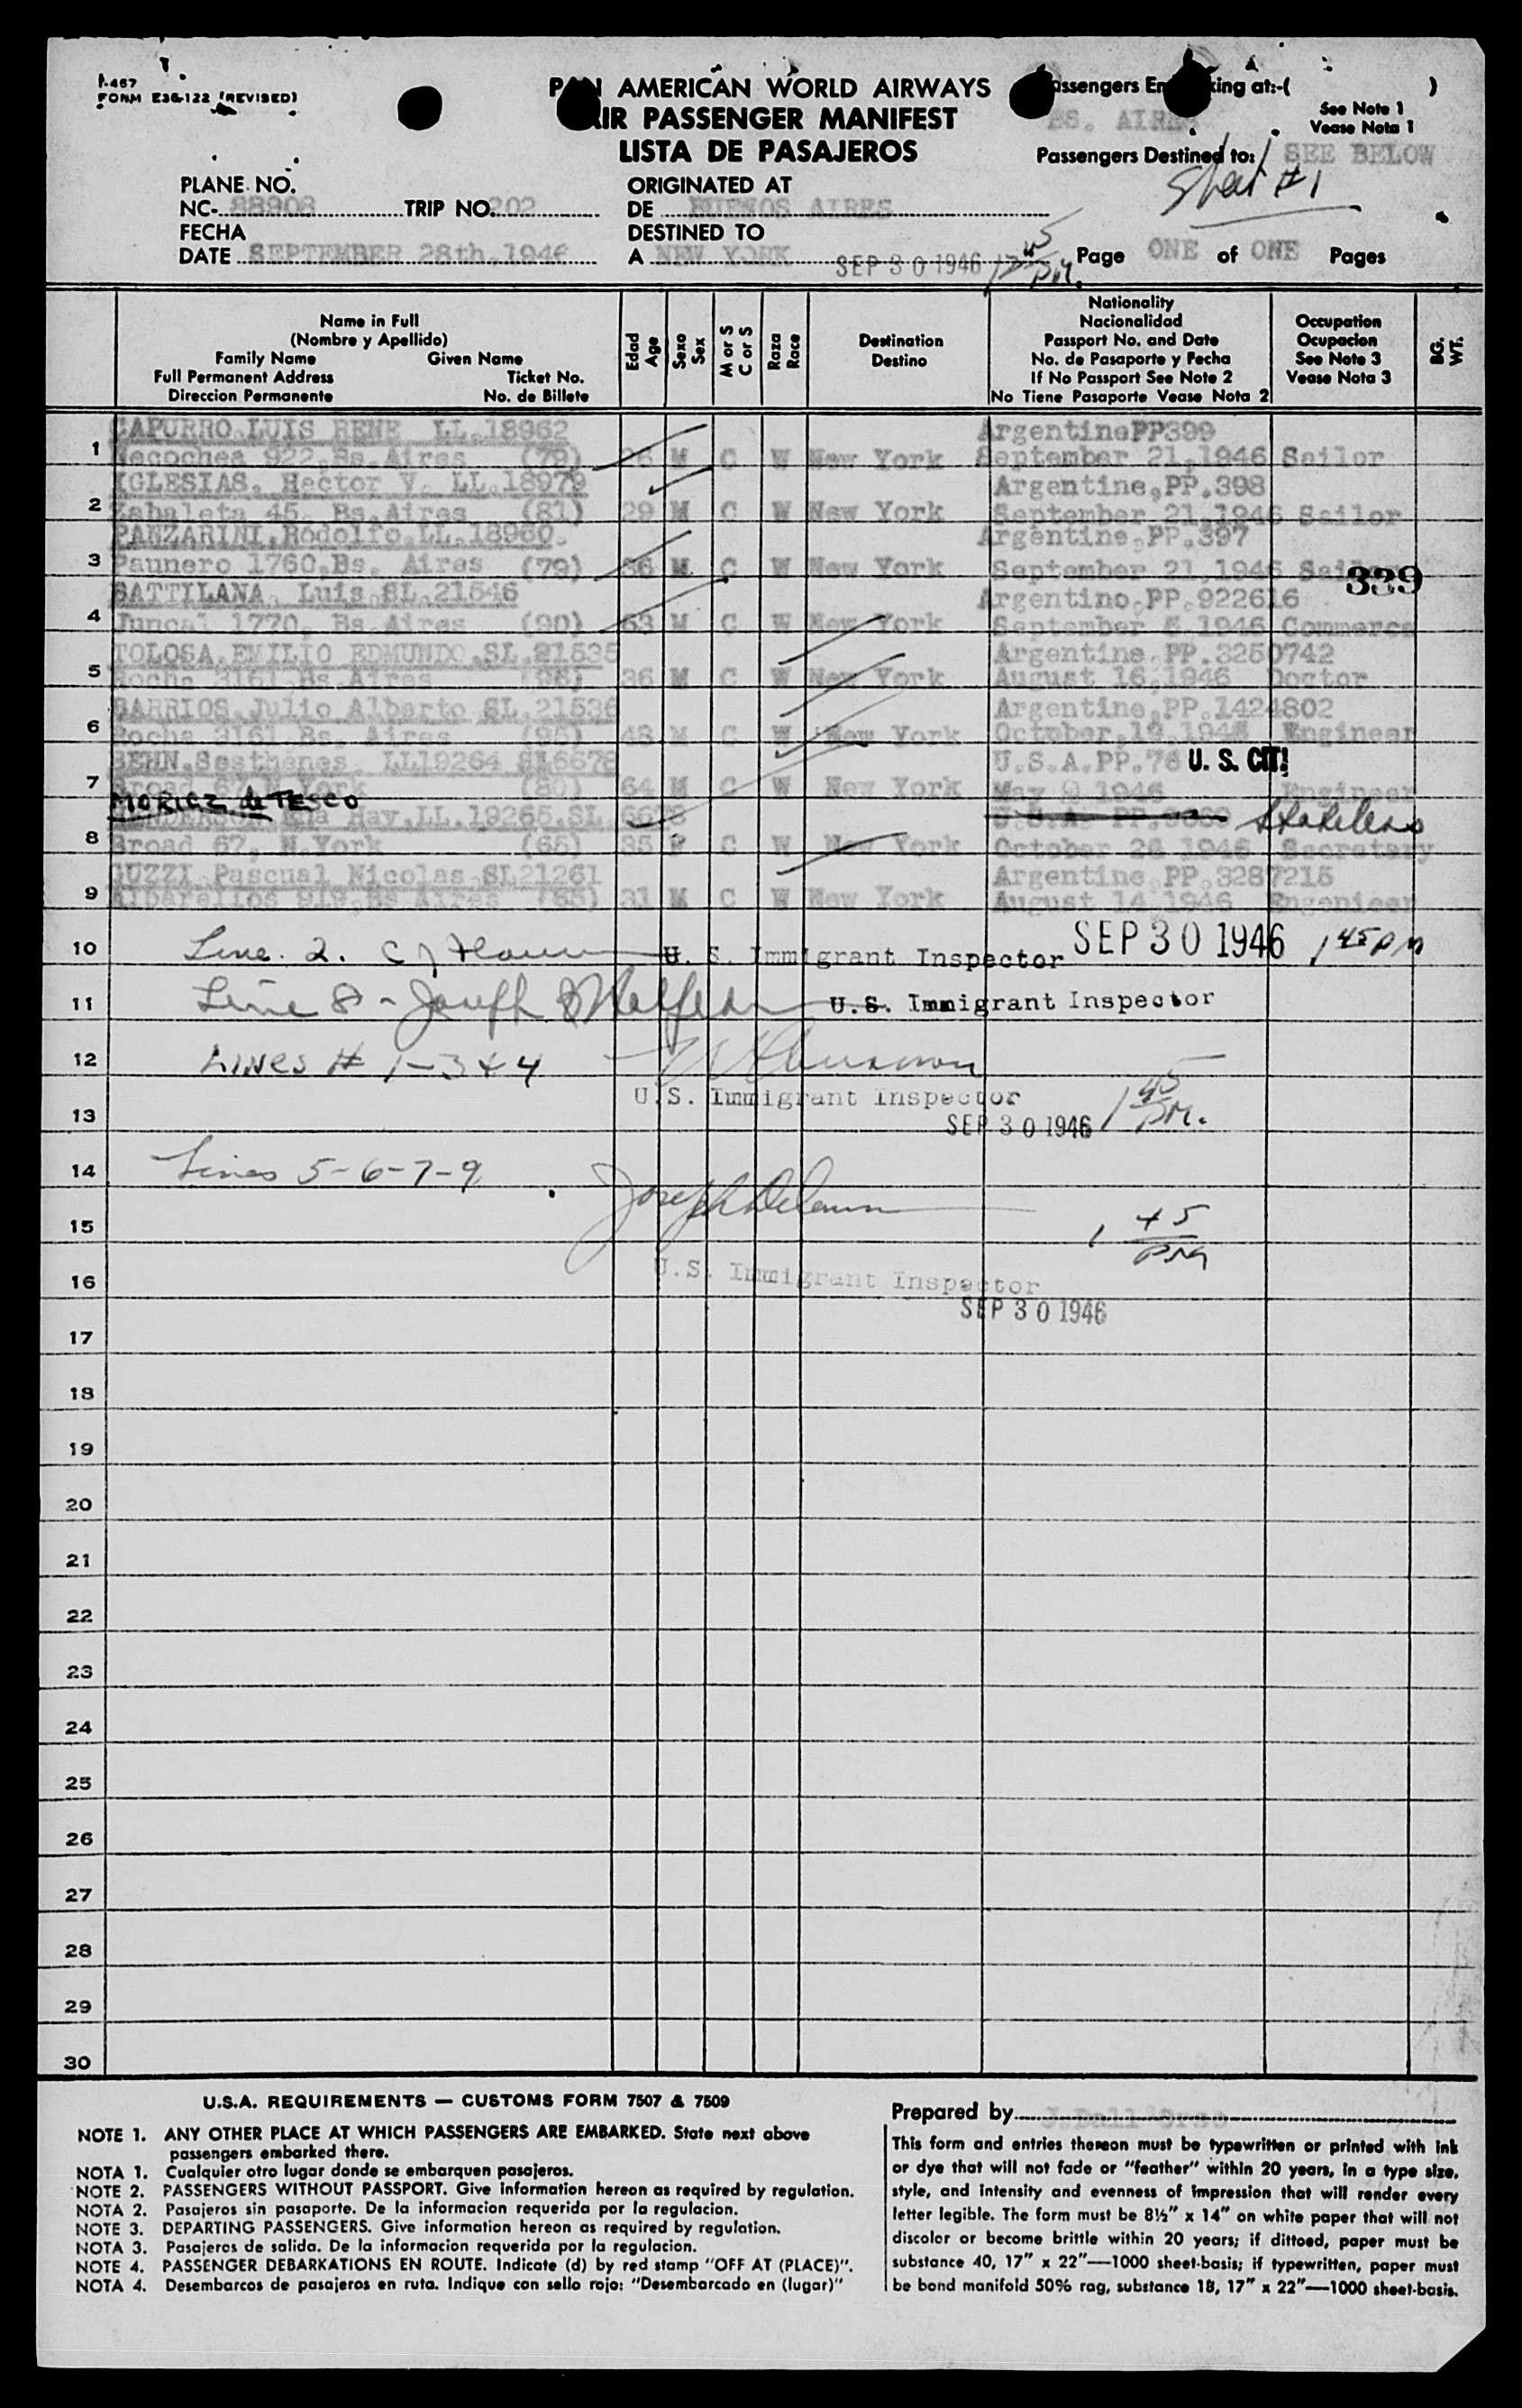 I-467
FORM E36-122 (REVISED)
PAN AMERICAN WORLD AIRWAYS
AIR PASSENGER MANIFEST
LISTA DE PASAJEROS
Passengers Embarking at:-( )
BS. AIRES
See Note 1
Vease Nota 1
Passengers Destined to: SEE BELOW
Sheet #1
PLANE NO.
NC- 88908 TRIP NO. 202
FECHA
DATE SEPTEMBER 28th, 1946
ORIGINATED AT
DE BUENOS AIRES
DESTINED TO
A NEW YORK
SEP 30 1946
Page ONE of ONE Pages
Name in Full
(Nombre y Apellido)
Family Name Given Name
Full Permanent Address Ticket No.
Direccion Permanente No. de Billete
Edad
Age
Sexo
Sex
M or S
C or S
Raza
Race
Destination
Destino
Nationality
Nacionalidad
Passport No. and Date
No. de Pasaporte y Fecha
If No Passport See Note 2
No Tiene Pasaporte Vease Nota 2
Occupation
Ocupacion
See Note 3
Vease Nota 3
BG.
WT.
CAPURRO, LUIS RENE LL.18962 Argentine PP399
1 Necochea 922, Bs. Aires (79) 26 M C W New York September 21, 1946 Sailor
IGLESIAS, Hector V. LL.18979 Argentine, PP. 398
2 Zabaleta 45, Bs. Aires (81) 29 M C W New York September 21, 1946 Sailor
PANZARINI, Rodolfo, LL. 18960. Argentine, PP. 397
3 Paunero 1760, Bs. Aires (79) 36 M C W New York September 21, 1946 Sailor
339
SATTILANA, Luis SL.21546 Argentino, PP. 922616
4 Juncal 1770, Bs. Aires (90) 63 M C W New York September 1946 Commerce
TOLOSA, EMILIO EDMUNDO, SL.21535 Argentine, PP. 3250742
5 Rocha 3161 Bs. Aires 36 M C W New York August 16, 1946 Doctor
BARRIOS, Julio Alberto SL.21536 Argentine, PP. 1424802
6 Rocha 3161 Bs. Aires (95) 48 M C W New York October, 19, Engineer
BEHN, Sosthenes, LL19264 SL6678 U.S.A. PP. 76 U. S. CIT!
7 Broad 67, N. York (80) 64 M C W New York May 1946 Engineer
MORICZ de TESCO
HENDERSON, Ena May, LL.19265, SL.6678 U.S.A. PP. Stateless
8 Broad 67, N. York (65) 35 F C W New York October 26 1946 Secretary
GUZZI Pascual Nicolas SL21261 Argentine, PP. 3287215
9 Albarellos 919, Bs Aires (65) 31 M C W New York August 14 1946 Engenieer
10 Line. 2. U. S. Immigrant Inspector SEP 30 1946 1 45 PM
11 Line 8 - Joseph U.S. Immigrant Inspector
12 LINES # 1-3 & 4
U.S. Immigrant Inspector
13 SEP 30 1946 1 45 PM.
14 Lines 5-6-7-9
Joseph
15 1 45 PM
16 U.S. Immigrant Inspector
SEP 30 1946
17
18
19
20
21
22
23
24
25
26
27
28
29
30
U.S.A. REQUIREMENTS — CUSTOMS FORM 7507 & 7509
NOTE 1. ANY OTHER PLACE AT WHICH PASSENGERS ARE EMBARKED. State next above
passengers embarked there.
NOTA 1. Cualquier otro lugar donde se embarquen pasajeros.
NOTE 2. PASSENGERS WITHOUT PASSPORT. Give information hereon as required by regulation.
NOTA 2. Pasajeros sin pasaporte. De la informacion requerida por la regulacion.
NOTE 3. DEPARTING PASSENGERS. Give information hereon as required by regulation.
NOTA 3. Pasajeros de salida. De la informacion requerida por la regulacion.
NOTE 4. PASSENGER DEBARKATIONS EN ROUTE. Indicate (d) by red stamp "OFF AT (PLACE)".
NOTA 4. Desembarcos de pasajeros en ruta. Indique con sello rojo: "Desembarcado en (lugar)"
Prepared by
This form and entries thereon must be typewritten or printed with ink
or dye that will not fade or "feather" within 20 years, in a type size,
style, and intensity and evenness of impression that will render every
letter legible. The form must be 8½" x 14" on white paper that will not
discolor or become brittle within 20 years; if dittoed, paper must be
substance 40, 17" x 22"—1000 sheet-basis; if typewritten, paper must
be bond manifold 50% rag, substance 18, 17" x 22"—1000 sheet-basis.